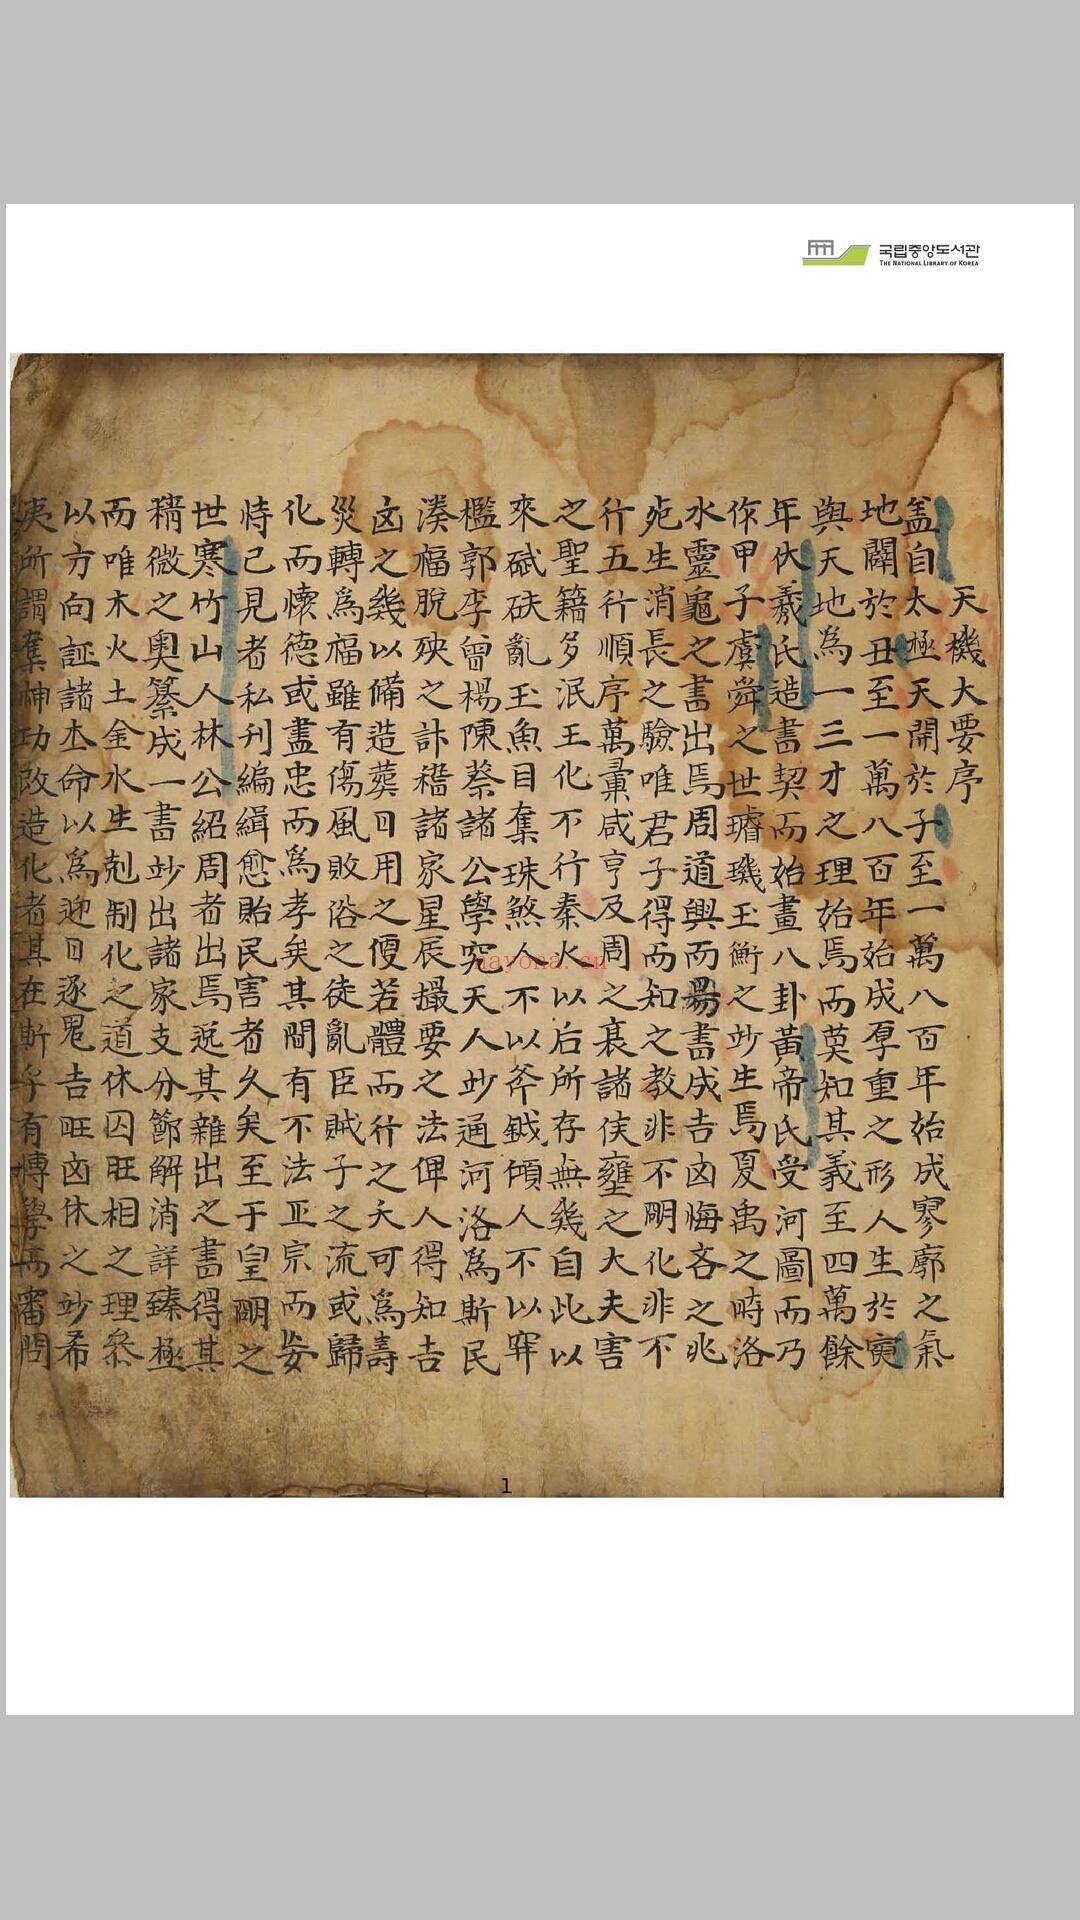 국립중앙도서관
THE NATIONAL LIBRARY OF KOREA
天機大要序
盖自太極天開於子至一萬八百年始成寥廓之氣
地闢於丑至一萬八百年始成厚重之形人生於寅
與天地爲一三才之理始焉而莫知其義至四萬餘
年伏羲氏造書契而始畫八卦黃帝氏受河圖而乃
作甲子虞舜之世璿璣玉衡之妙生焉夏禹之時洛
水靈龜之書出焉周道興而易書成吉凶悔吝之兆
死生消長之驗唯君子得而知之教非不明化非不
行五行順序萬彙咸亨及周之衰諸侯壅之大夫害
之聖籍多泯王化不行秦火以后所存無幾自此以
來碔砆亂玉魚目奪珠煞人不以斧鉞傾人不以穽
檻郭李曾楊陳蔡諸公學究天人妙通河洛爲斯民
湊福脫殃之計稽諸家星辰撮要之法俾人得知吉
凶之幾以備造葬日用之便若體而行之夭可爲壽
災轉爲福雖有傷風敗俗之徒亂臣賊子之流或歸
化而懷德或盡忠而爲孝矣其間有不法正宗而妄
恃己見者私刊編緝愈貽民害者久矣至于皇明之
世寒竹山人林公紹周者出焉逆其雜出之書得其
精微之奧纂成一書妙出諸家支分節解消詳臻極
而唯木火土金水生剋制化之道休囚旺相之理叅
以方向証諸本命以爲迎日逐鬼吉旺凶休之妙希
夷所謂奪神功改造化者其在斯乎有博學而審問
nayona.cn
1